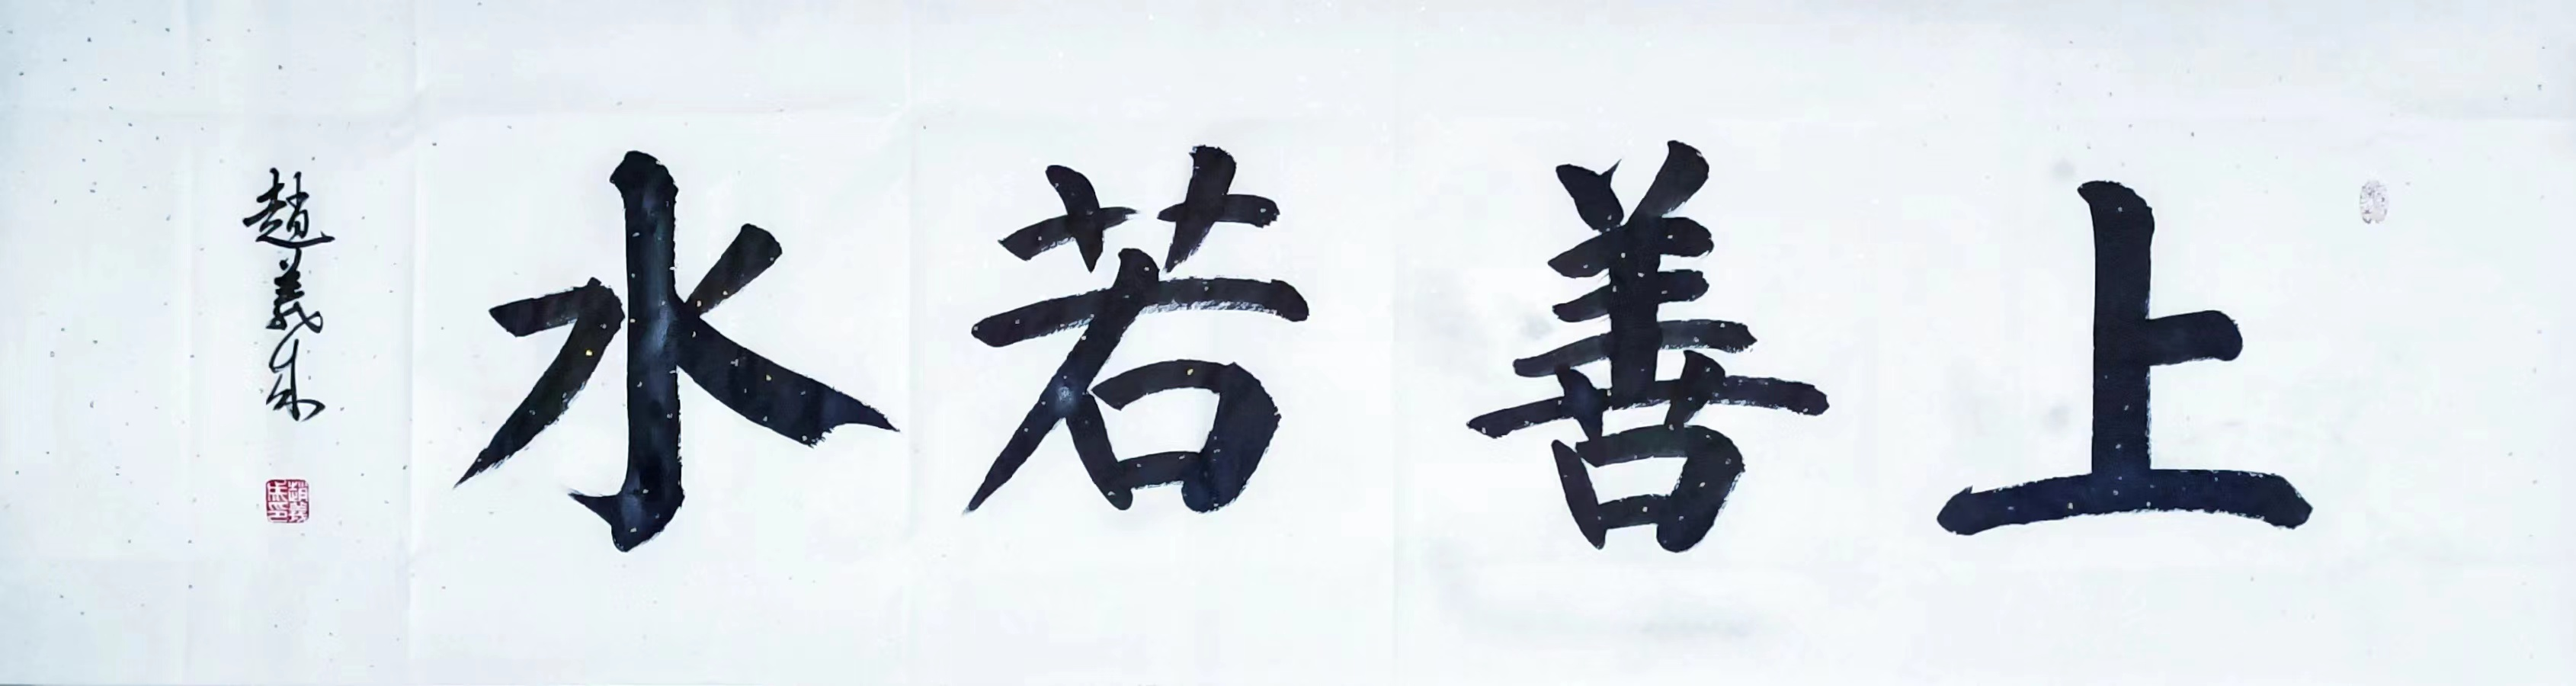 上善若水
趙義朱